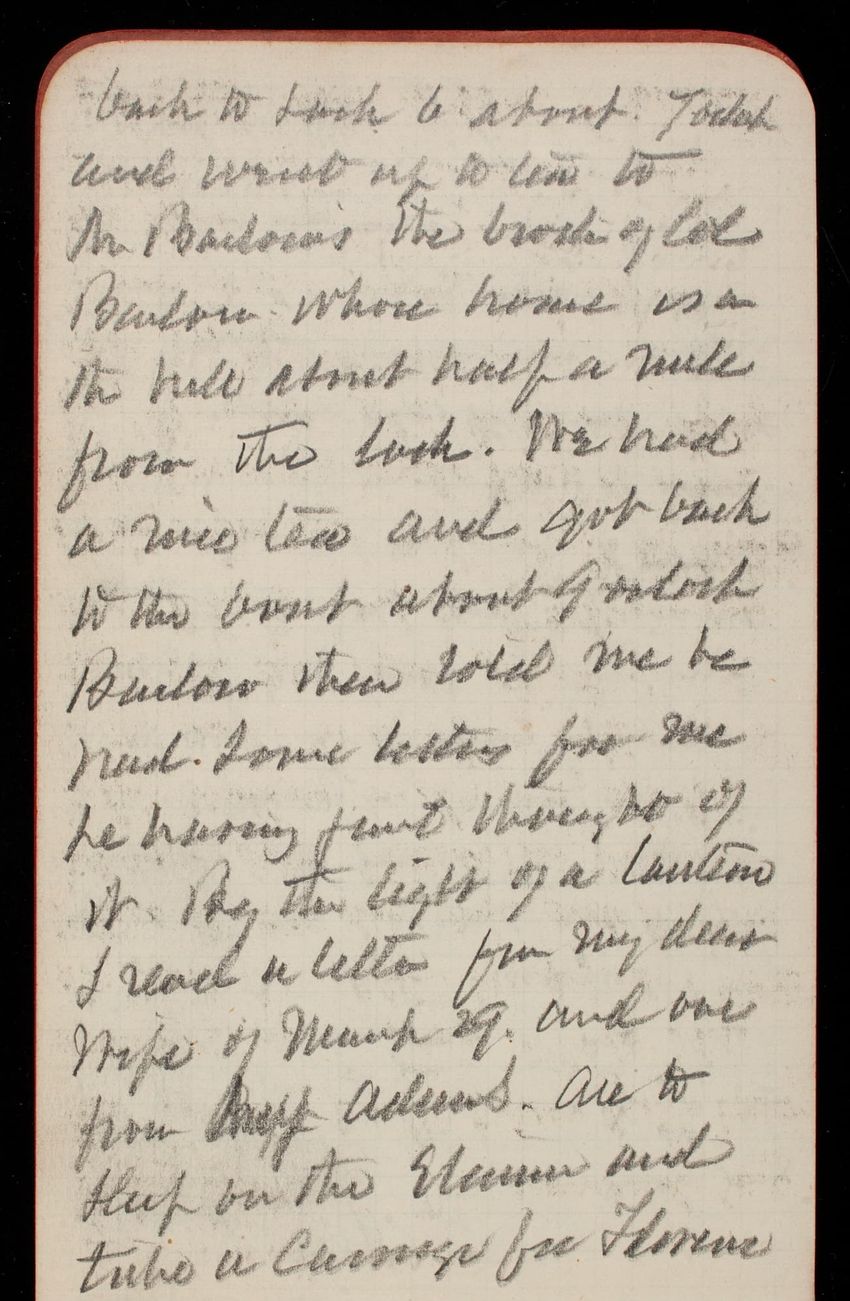 back to Lock 6 about 7 oclock
and went up to tea to
Mr Barlow's the brother of Col
Barlow whose home is on
the hill about half a mile
from the Lock. We had
a nice tea and got back
to the boat about 9 oclock
Barlow then told me he
had some letters for me
he having just thought of
it. By the light of a lantern
I read a letter from my dear
Wife of March 29. and one
from Adams. Are to
sleep on the Steamer and
take a Carriage for Florence